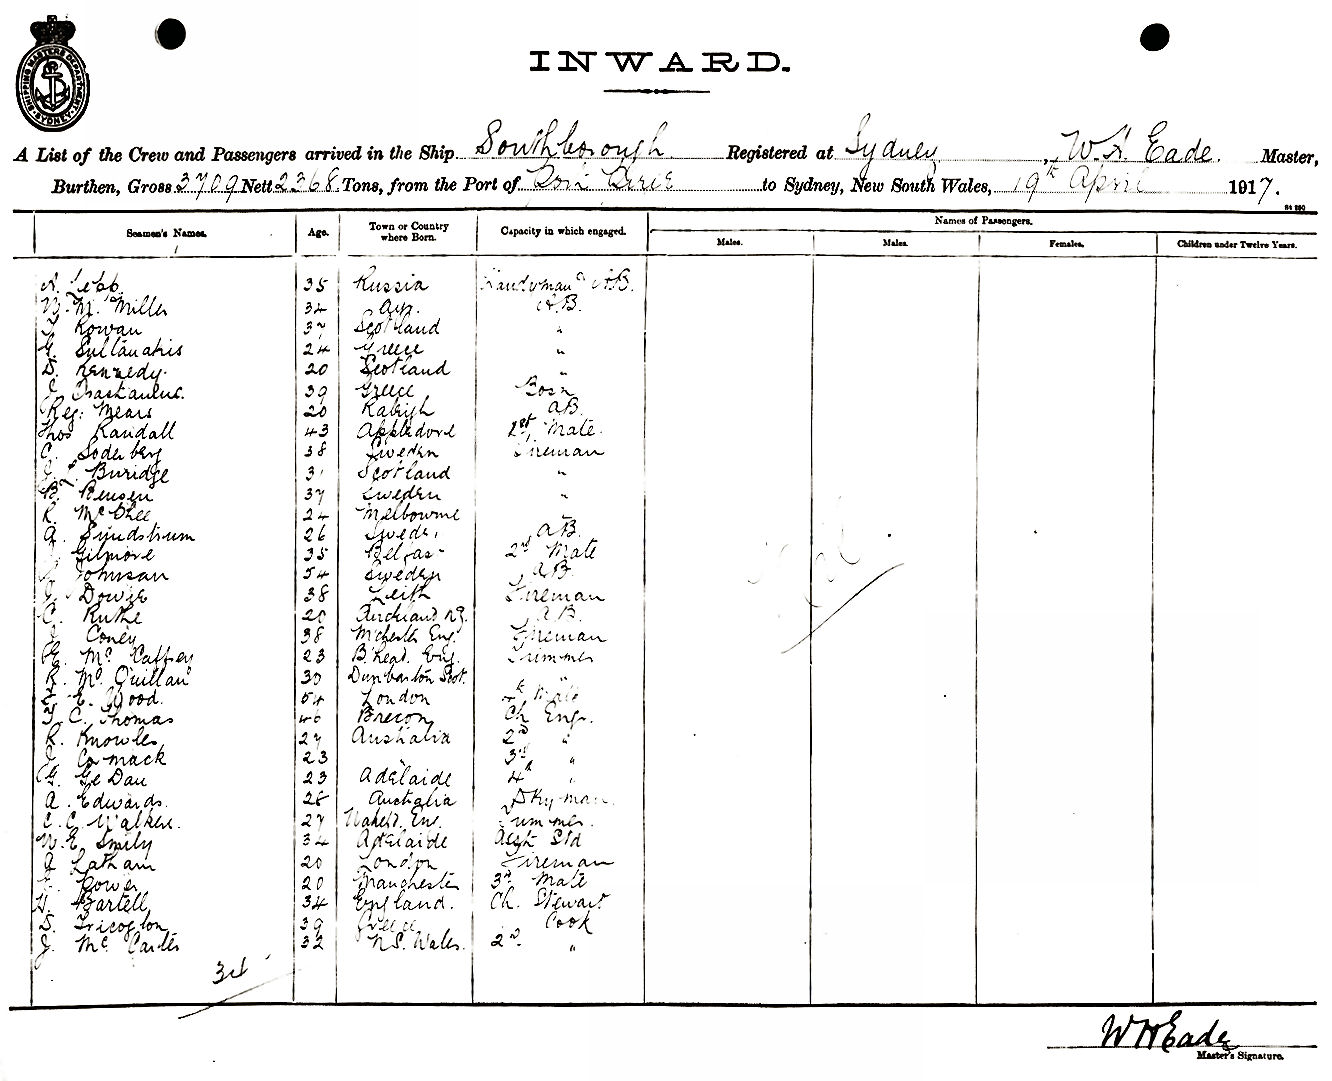 SHIPPING MASTERS DEPARTMENT SYDNEY
INWARD.
A List of the Crew and Passengers arrived in the Ship Southborough Registered at Sydney, W. H. Eade. Master,
Burthen, Gross 3709 Nett 2368 Tons, from the Port of Port Pirie to Sydney, New South Wales, 19th April 1917.
Seamen's Names. Age. Town or Country where Born. Capacity in which engaged. Names of Passengers.
Males. Males. Females. Children under Twelve Years.
A. 35 Russia A.B.
Mc Miller 34 A.B.
Rowan 37 Scotland "
G. Sultanakis 24 Greece "
D. Kennedy 20 Scotland "
39 Greece Bosn
Reg. Mears 20 Raleigh AB.
Thos Randall 43 Appledore 1st Mate.
C. Soderberg 38 Sweden Fireman
Buridge 31 Scotland "
B. Bensen 37 Sweden "
R. McPhee 24 Melbourne "
A. Sundstrum 26 AB.
Gilmore 35 2nd Mate
Johnson 54 Sweden AB.
Dowie 38 Leith Fireman
C. Ruthe 20 Auckland NZ. A.B.
Coney 38 M'chester Eng. Fireman
Mc Caffrey 23 B'head. Eng. Trimmer
R. Mc Quillan 30 Dunbarton Scot. "
E. Wood. 54 London Mate
C. Thomas 46 Brecon Ch Engr.
R. Knowles 27 Australia 2nd "
Cormack 23 3rd "
G. Ge Dau 23 Adelaide 4th "
A. Edwards. 28 Australia Dky man.
C. C. Walker. 27 Wakefd. Eng. Trimmer.
W. E. Smily 34 Adelaide Asst Std
A Latham 20 London Fireman
Gower 20 Manchester 3rd Mate
H. Bartell 34 England. Ch. Stewart
S. Tricoglon 39 Greece Cook
J. Mc Carter 32 N.S. Wales. 2nd "
W H Eade
Master's Signature.